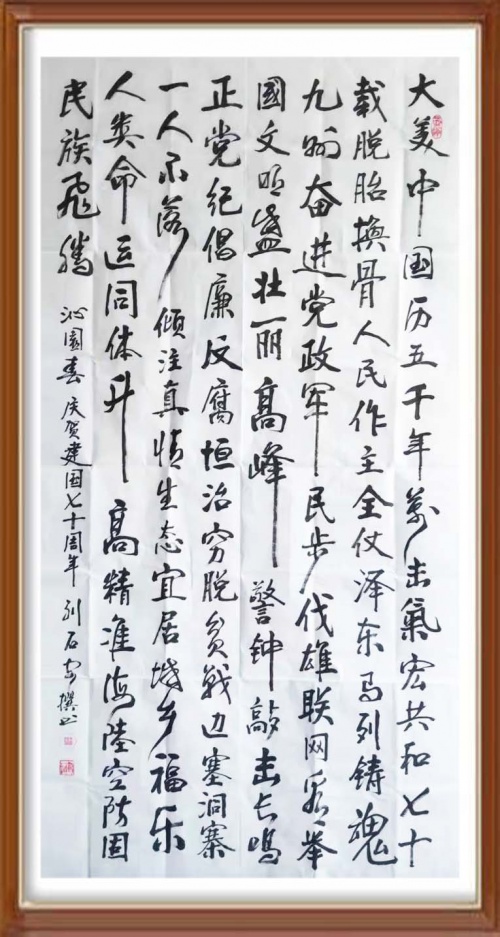 大美中国历五千年萬击氣宏共和七十
载脱胎换骨人民作主全仗泽东马列铸魂
九州奋进党政军民步伐雄联网举
國文明盛壮丽高峰警钟敲击长鸣
正党纪倡廉反腐恒治穷脱贫战边塞洞寨
一人不落倾注真情生态宜居城乡福乐
人类命运同体升高精准海陸空防固
民族飛腾 沁園春 庆贺建国七十周年 刘石安撰书